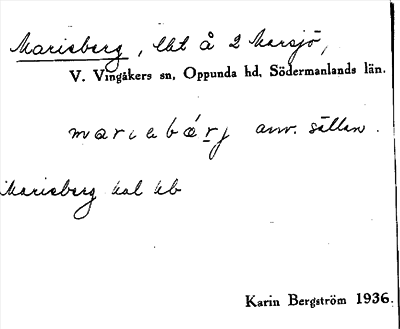 Marieberg, lht å 2 Marsjö,
V. Vingåkers sn, Oppunda hd, Södermanlands län.
mariabárj anv. sällan.
Marieberg kal kb
Karin Bergström 1936.